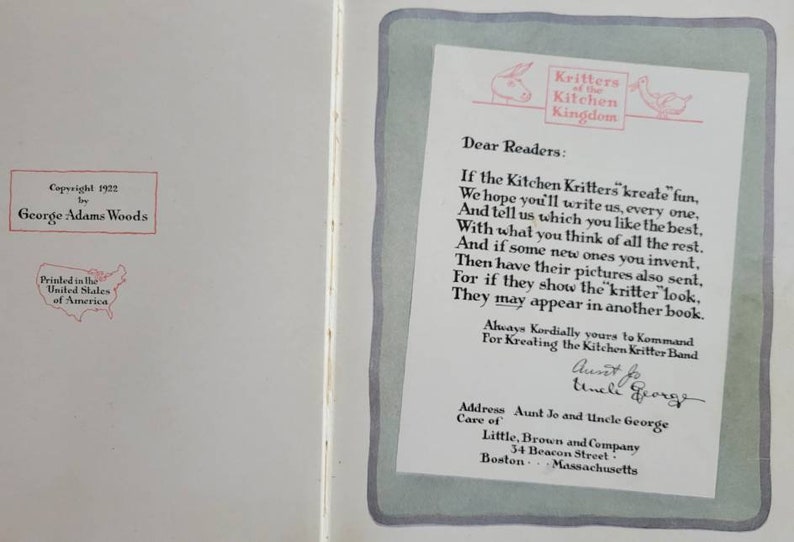 Copyright 1922
by
George Adams Woods
Printed in the
United States
of America
Kritters
of the
Kitchen
Kingdom
Dear Readers:
If the Kitchen Kritters "kreate" fun,
We hope you'll write us, every one,
And tell us which you like the best,
With what you think of all the rest.
And if some new ones you invent,
Then have their pictures also sent,
For if they show the "kritter" look,
They may appear in another book.
Always Kordially yours to Kommand
For Kreating the Kitchen Kritter Band
Aunt Jo
Uncle George
Address Aunt Jo and Uncle George
Care of
Little, Brown and Company
34 Beacon Street ·
Boston · · · Massachusetts